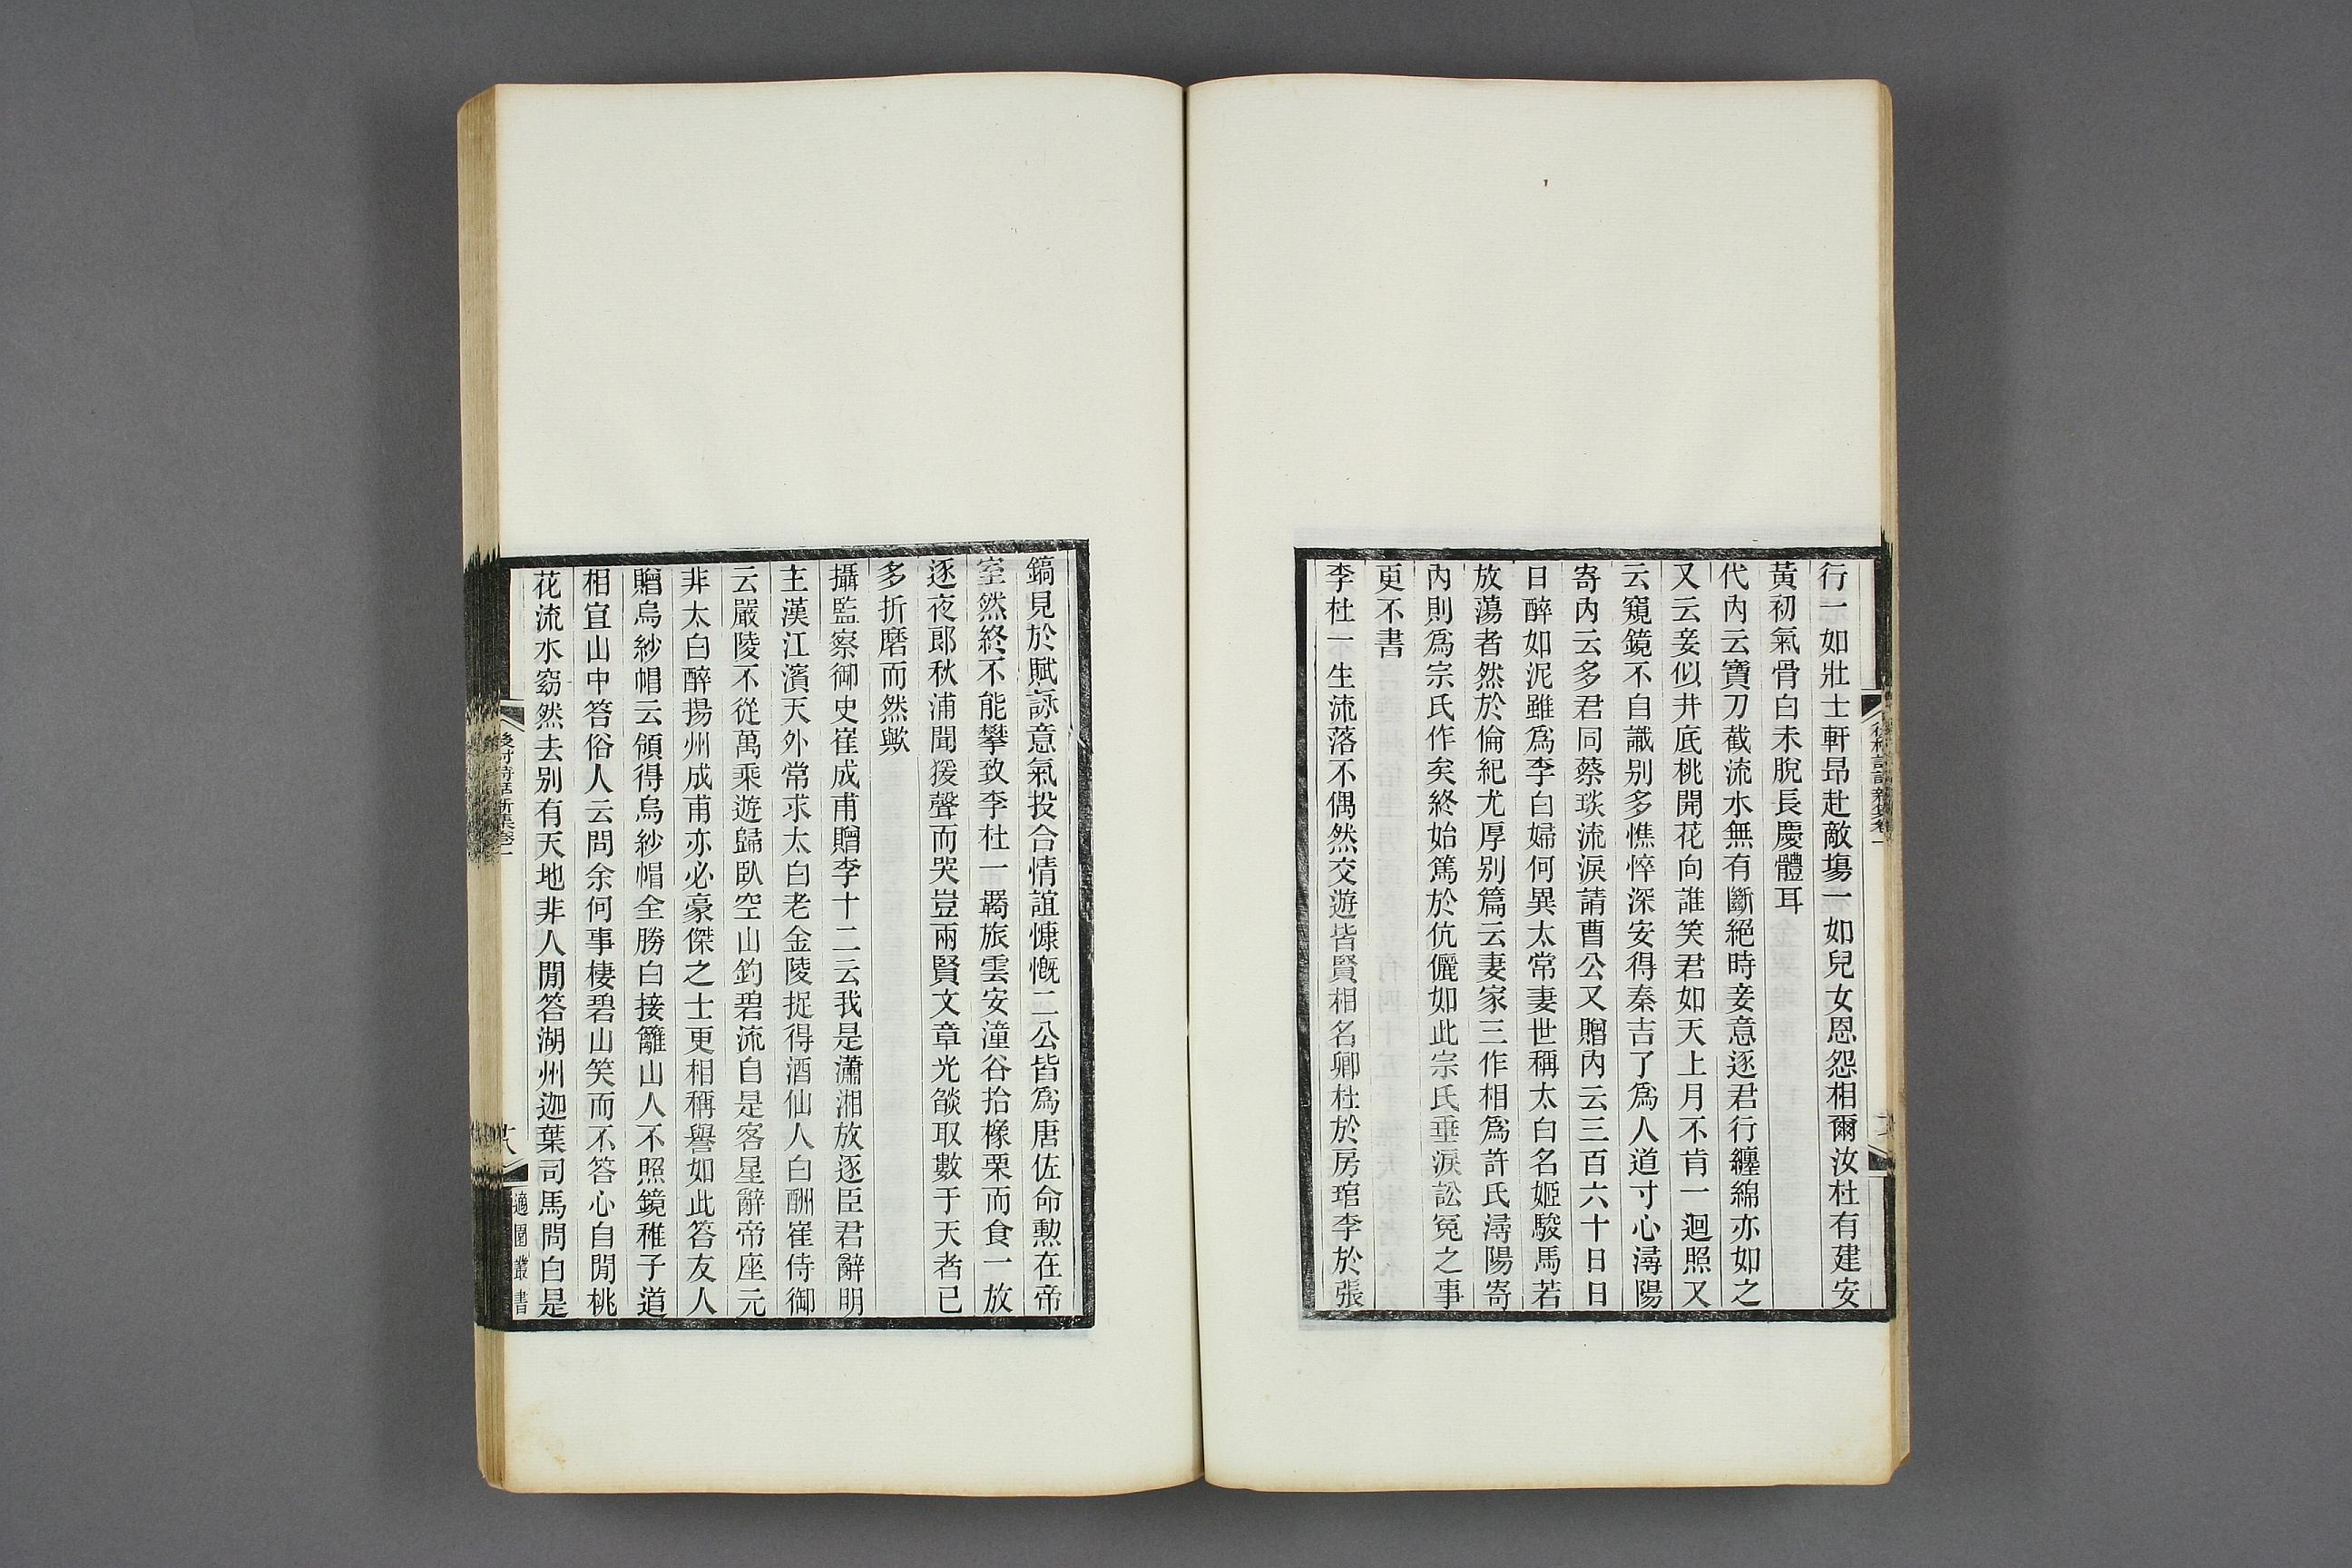 行一如壯士軒昂赴敵場一如兒女恩怨相爾汝杜有建安
黃初氣骨白未脫長慶體耳
代內云寶刀截流水無有斷絕時妾意逐君行纏綿亦如之
又云妾似井底桃開花向誰笑君如天上月不肯一迴照又
云窺鏡不自識别多憔悴深安得秦吉了爲人道寸心潯陽
寄內云多君同蔡琰流淚請曹公又贈內云三百六十日日
日醉如泥雖爲李白婦何異太常妻世稱太白名姬駿馬若
放蕩者然於倫紀尤厚别篇云妻家三作相爲許氏潯陽寄
內則爲宗氏作矣終始篤於伉儷如此宗氏垂淚訟冤之事
更不書
李杜一生流落不偶然交遊皆賢相名卿杜於房琯李於張
鎬見於賦詠意氣投合情誼慷慨二公皆爲唐佐命勲在帝
室然終不能攀致李杜一羇旅雲安潼谷拾橡栗而食一放
逐夜郎秋浦聞猨聲而哭豈兩賢文章光燄取數于天者已
多折磨而然歟
攝監察御史崔成甫贈李十二云我是瀟湘放逐臣君辭明
主漢江濱天外常求太白老金陵捉得酒仙人白酬崔侍御
云嚴陵不從萬乘遊歸臥空山釣碧流自是客星辭帝座元
非太白醉揚州成甫亦必豪傑之士更相稱譽如此答友人
贈烏紗帽云領得烏紗帽全勝白接籬山人不照鏡稚子道
相宜山中答俗人云問余何事棲碧山笑而不答心自閒桃
花流水窈然去别有天地非人閒答湖州迦葉司馬問白是
後村詩話新集卷一
十八
適園叢書